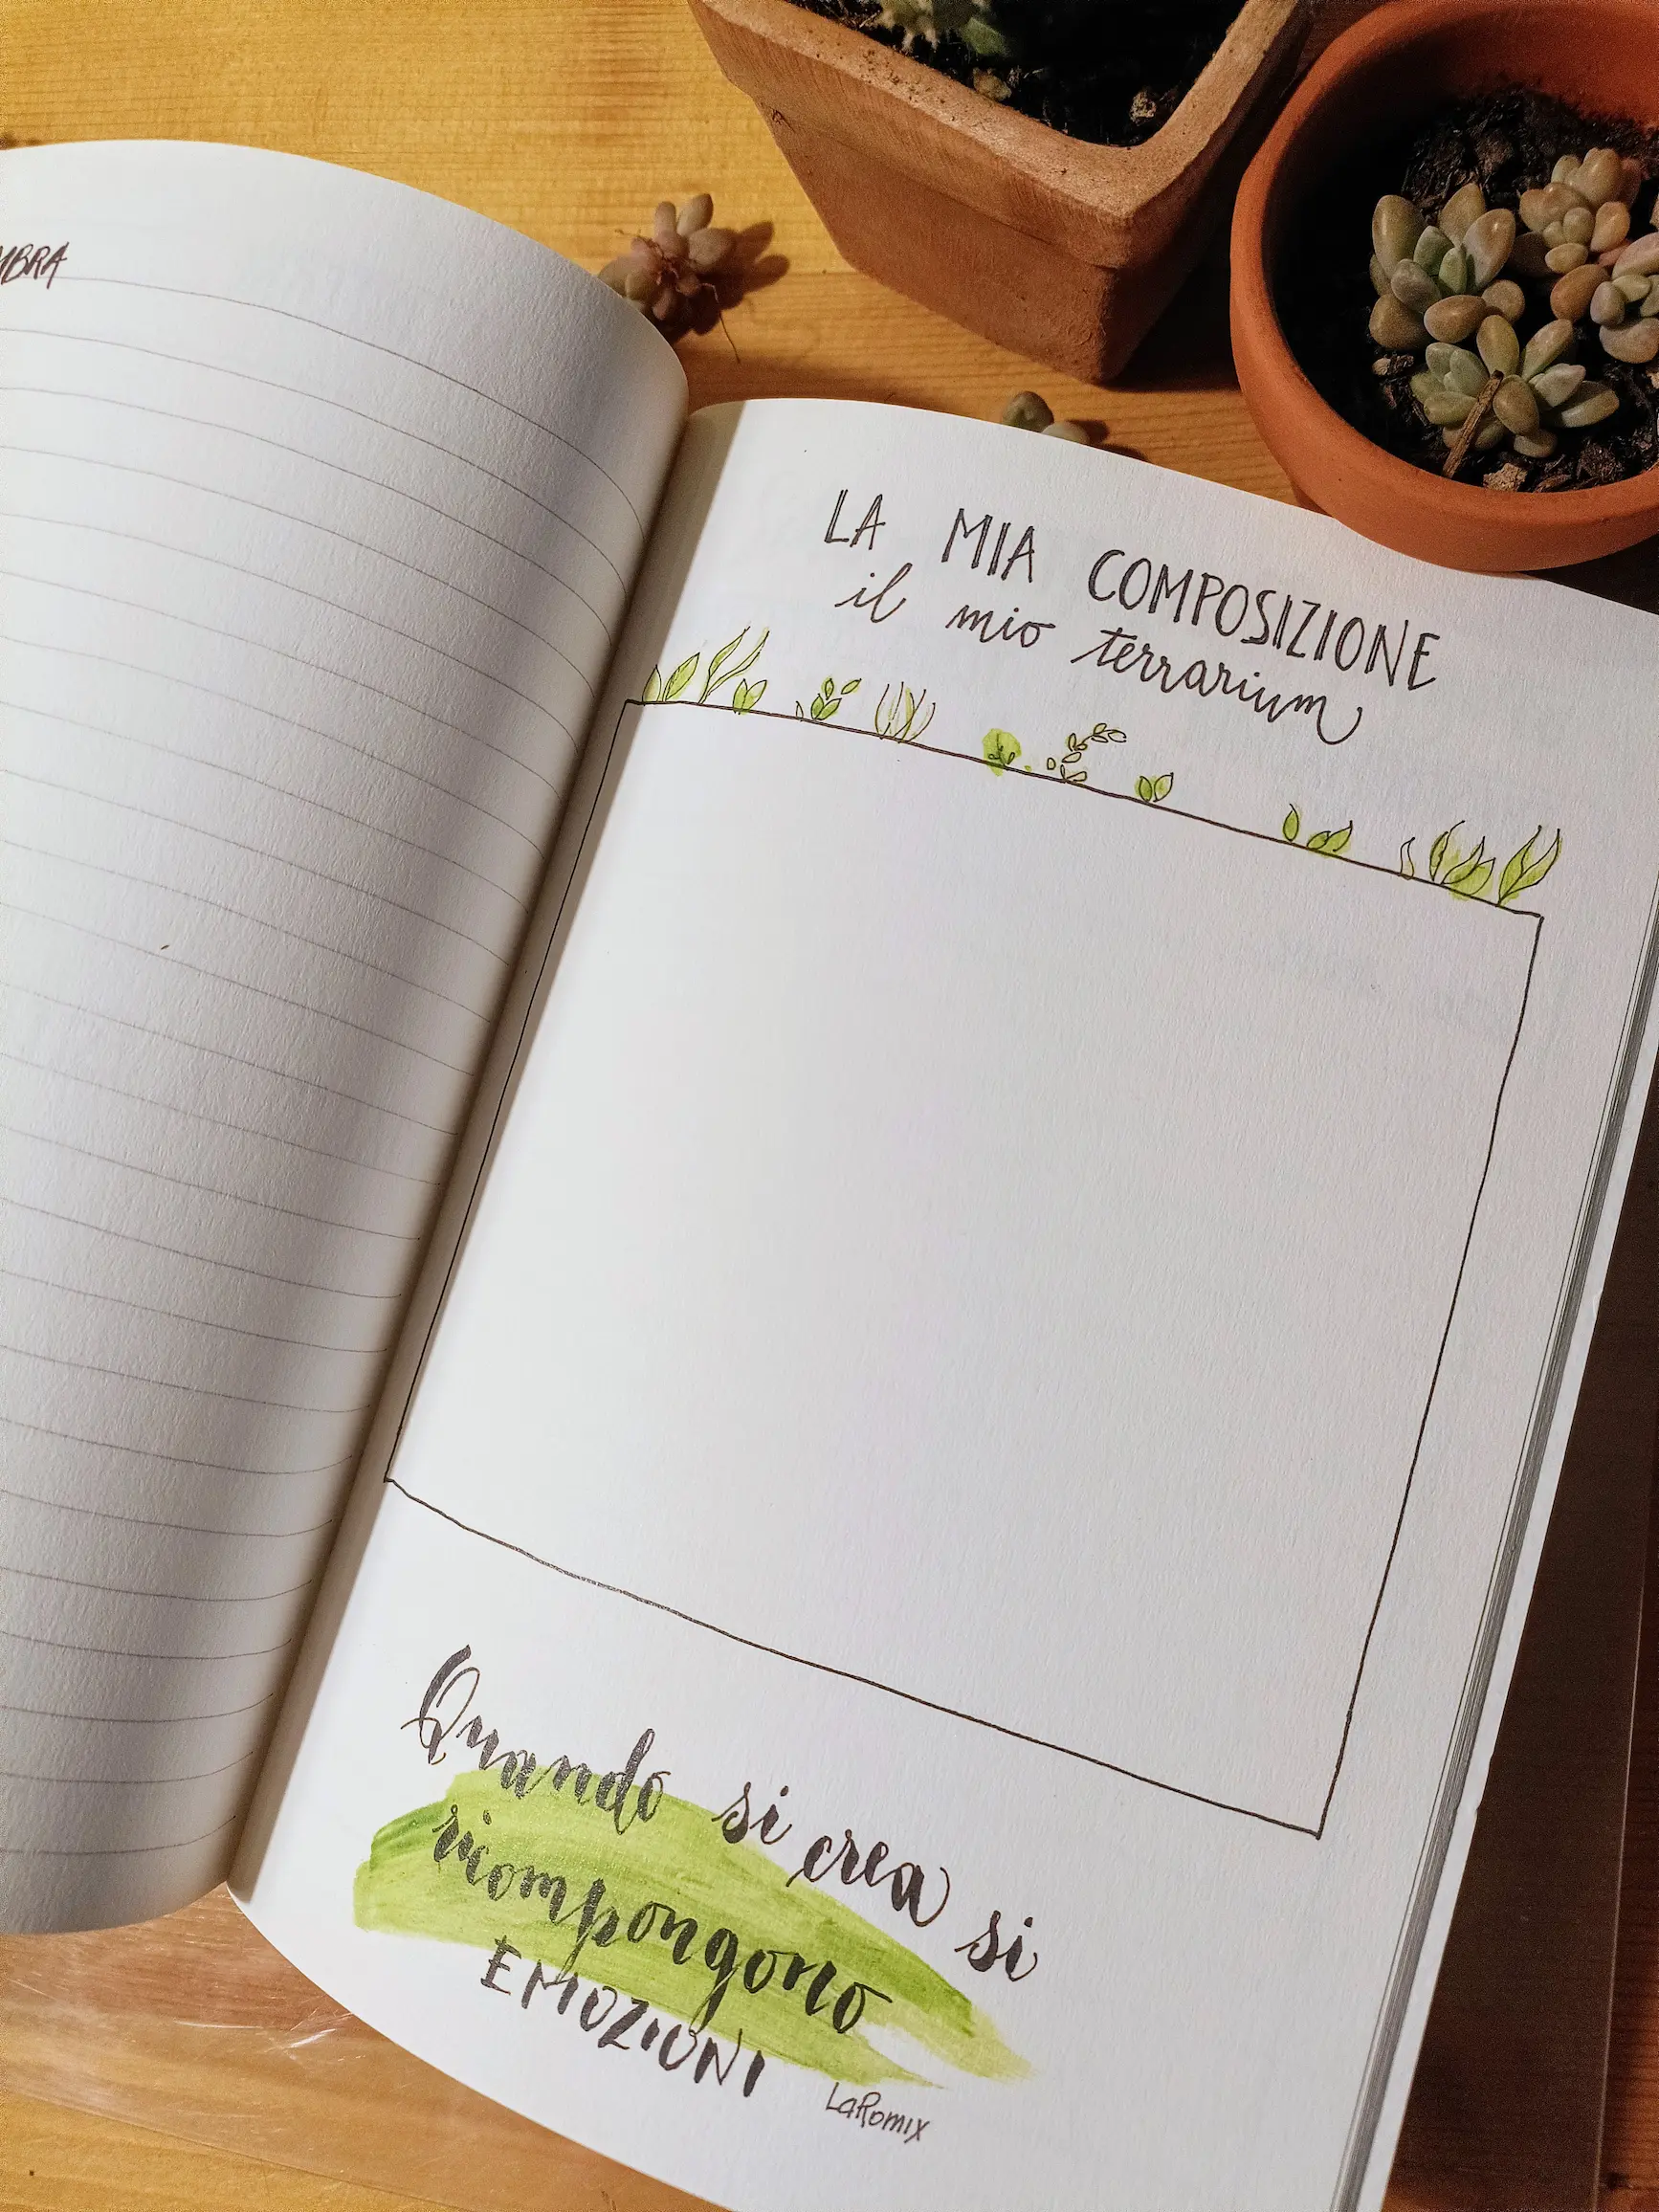 LA MIA COMPOSIZIONE
il mio terrarium
Quando si crea si
ricompongono
EMOZIONI
LaRomix